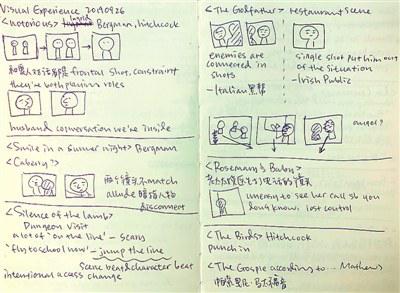 Visual Experience 20190926
<Notorious> Ingrid Bergman, hitchcock
frontal shot, constraint
they're both playing roles
husband conversation we're inside
<Smile in a Summer night> Bergman
<Cabery?>
两个镜头不match
allude 暗指人物
disconnect
<Silence of the lamb>
Dungeon visit
a lot of "on the line" - scary
"fly to school now" - jump the line
Scene beat & character beat
intentional access change
<The Godfather> restaurant scene
enemies are
connected in
shots
- Italian 黑帮
single shot put him out
of the situation
- Irish Public
anger?
<Rosemary's Baby>
uneasy to see her call sb you
don't know. lost control
<The Birds> Hitchcock
punch in
<The Gosple according to ... Mathew>
帕索里尼·马太福音